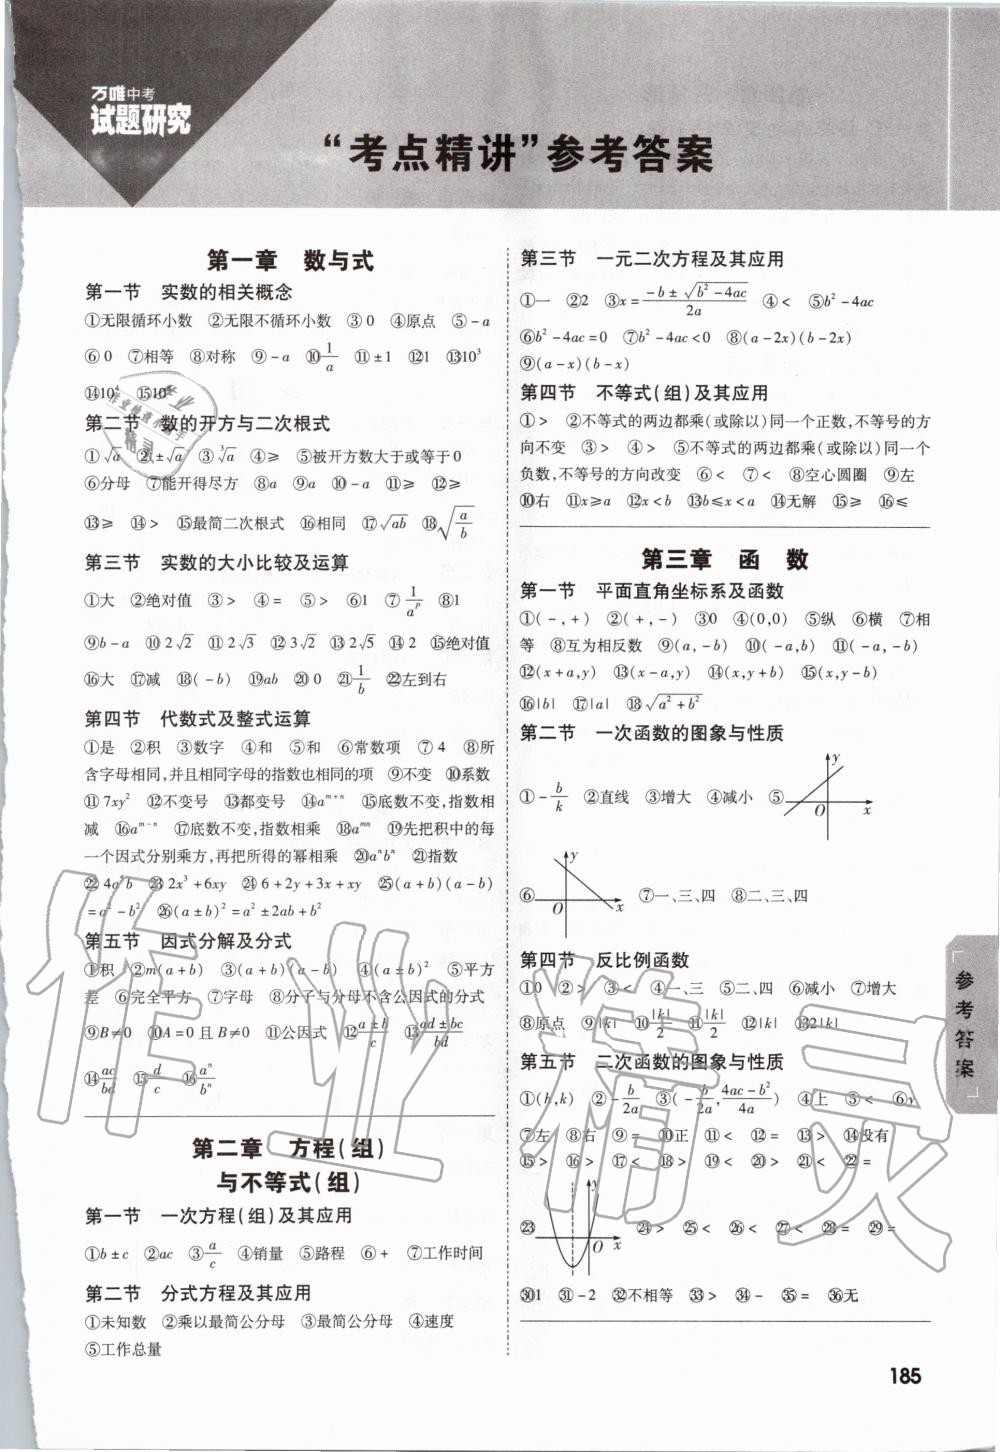 万唯中考
试题研究
“考点精讲”参考答案
第一章 数与式
第一节 实数的相关概念
①无限循环小数 ②无限不循环小数 ③0 ④原点 ⑤-a
⑥0 ⑦相等 ⑧对称 ⑨-a ⑩1/a ⑪±1 ⑫1 ⑬10³
⑭10⁴ ⑮10⁸
第二节 数的开方与二次根式
①√a ②±√a ③∛a ④≥ ⑤被开方数大于或等于0
⑥分母 ⑦能开得尽方 ⑧a ⑨a ⑩-a ⑪≥ ⑫≥
⑬≥ ⑭> ⑮最简二次根式 ⑯相同 ⑰√ab ⑱√(a/b)
第三节 实数的大小比较及运算
①大 ②绝对值 ③> ④= ⑤> ⑥1 ⑦1/aᵖ ⑧1
⑨b-a ⑩2√2 ⑪2√3 ⑫3√2 ⑬2√5 ⑭2 ⑮绝对值
⑯大 ⑰减 ⑱(-b) ⑲ab ⑳0 ㉑1/b ㉒左到右
第四节 代数式及整式运算
①是 ②积 ③数字 ④和 ⑤和 ⑥常数项 ⑦4 ⑧所
含字母相同,并且相同字母的指数也相同的项 ⑨不变 ⑩系数
⑪7xy² ⑫不变号 ⑬都变号 ⑭aᵐ⁺ⁿ ⑮底数不变,指数相
减 ⑯aᵐ⁻ⁿ ⑰底数不变,指数相乘 ⑱aᵐⁿ ⑲先把积中的每
一个因式分别乘方,再把所得的幂相乘 ⑳aⁿbⁿ ㉑指数
㉒4a⁵b ㉓2x³+6xy ㉔6+2y+3x+xy ㉕(a+b)(a-b)
=a²-b² ㉖(a±b)²=a²±2ab+b²
第五节 因式分解及分式
①积 ②m(a+b) ③(a+b)(a-b) ④(a±b)² ⑤平方
差 ⑥完全平方 ⑦字母 ⑧分子与分母不含公因式的分式
⑨B≠0 ⑩A=0且B≠0 ⑪公因式 ⑫(a±b)/c ⑬(ad±bc)/bd
⑭ac/bd ⑮d/c ⑯aⁿ/bⁿ
第二章 方程(组)
与不等式(组)
第一节 一次方程(组)及其应用
①b±c ②ac ③a/c ④销量 ⑤路程 ⑥+ ⑦工作时间
第二节 分式方程及其应用
①未知数 ②乘以最简公分母 ③最简公分母 ④速度
⑤工作总量
第三节 一元二次方程及其应用
①一 ②2 ③x=(-b±√(b²-4ac))/2a ④< ⑤b²-4ac
⑥b²-4ac=0 ⑦b²-4ac<0 ⑧(a-2x)(b-2x)
⑨(a-x)(b-x)
第四节 不等式(组)及其应用
①> ②不等式的两边都乘(或除以)同一个正数,不等号的方
向不变 ③> ④> ⑤不等式的两边都乘(或除以)同一个
负数,不等号的方向改变 ⑥< ⑦< ⑧空心圆圈 ⑨左
⑩右 ⑪x≥a ⑫x<b ⑬b≤x<a ⑭无解 ⑮≥ ⑯≤
第三章 函 数
第一节 平面直角坐标系及函数
①(-,+) ②(+,-) ③0 ④(0,0) ⑤纵 ⑥横 ⑦相
等 ⑧互为相反数 ⑨(a,-b) ⑩(-a,b) ⑪(-a,-b)
⑫(x+a,y) ⑬(x-a,y) ⑭(x,y+b) ⑮(x,y-b)
⑯|b| ⑰|a| ⑱√(a²+b²)
第二节 一次函数的图象与性质
①-b/k ②直线 ③增大 ④减小 ⑤ y O x
⑥ y O x ⑦一、三、四 ⑧二、三、四
第四节 反比例函数
①0 ②> ③< ④一、三 ⑤二、四 ⑥减小 ⑦增大
⑧原点 ⑨|k| ⑩|k|/2 ⑪|k|/2 ⑫|k| ⑬2|k|
第五节 二次函数的图象与性质
①(h,k) ②-b/2a ③(-b/2a,(4ac-b²)/4a) ④上 ⑤< ⑥y
⑦左 ⑧右 ⑨= ⑩正 ⑪< ⑫= ⑬> ⑭没有
⑮> ⑯> ⑰< ⑱> ⑲< ⑳> ㉑< ㉒=
㉓ y O x ㉔> ㉕< ㉖< ㉗< ㉘= ㉙=
㉚1 ㉛-2 ㉜不相等 ㉝> ㉞- ㉟= ㊱无
参考答案
185
作业精灵